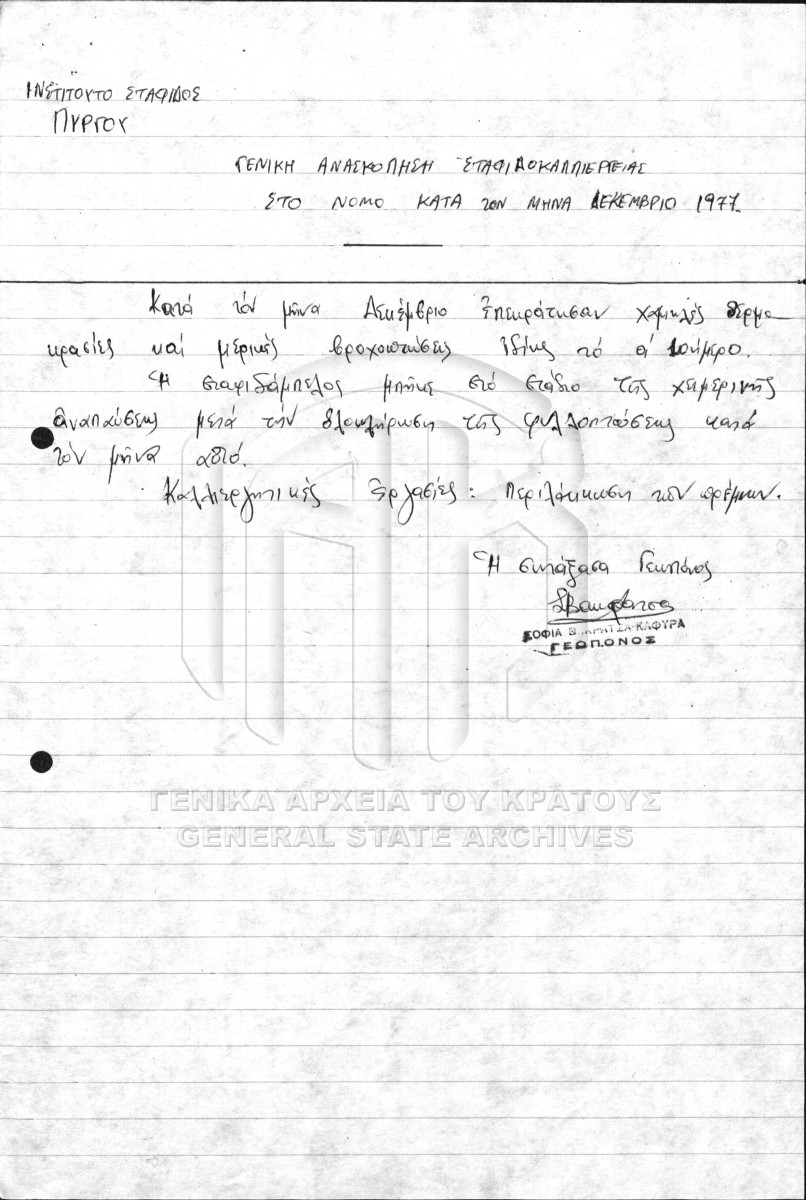 ΙΝΣΤΙΤΟΥΤΟ ΣΤΑΦΙΔΟΣ
ΠΥΡΓΟΥ
ΓΕΝΙΚΗ ΑΝΑΣΚΟΠΗΣΗ ΣΤΑΦΙΔΟΚΑΛΛΙΕΡΓΕΙΑΣ
ΣΤΟ ΝΟΜΟ ΚΑΤΑ τον ΜΗΝΑ ΔΕΚΕΜΒΡΙΟ 1977
Κατά τόν μῆνα Δεκέμβριο ἐπεκράτησαν χαμηλές θερμο-
κρασίες καί μερικές βροχοπτώσεις ἰδίως τό α' 10ήμερο.
Ἡ σταφιδάμπελος μπῆκε στό στάδιο τῆς χειμερινῆς
ἀναπαύσεως μετά τήν ὁλοκλήρωση τῆς φυλλοπτώσεως κατά
τόν μῆνα αὐτό.
Καλλιεργητικές ἐργασίες: Περιλάκκωση των πρέμνων.
Ἡ συντάξασα Γεωπόνος
ΣΟΦΙΑ ΚΑΦΥΡΑ
ΓΕΩΠΟΝΟΣ
ΓΕΝΙΚΑ ΑΡΧΕΙΑ ΤΟΥ ΚΡΑΤΟΥΣ
GENERAL STATE ARCHIVES